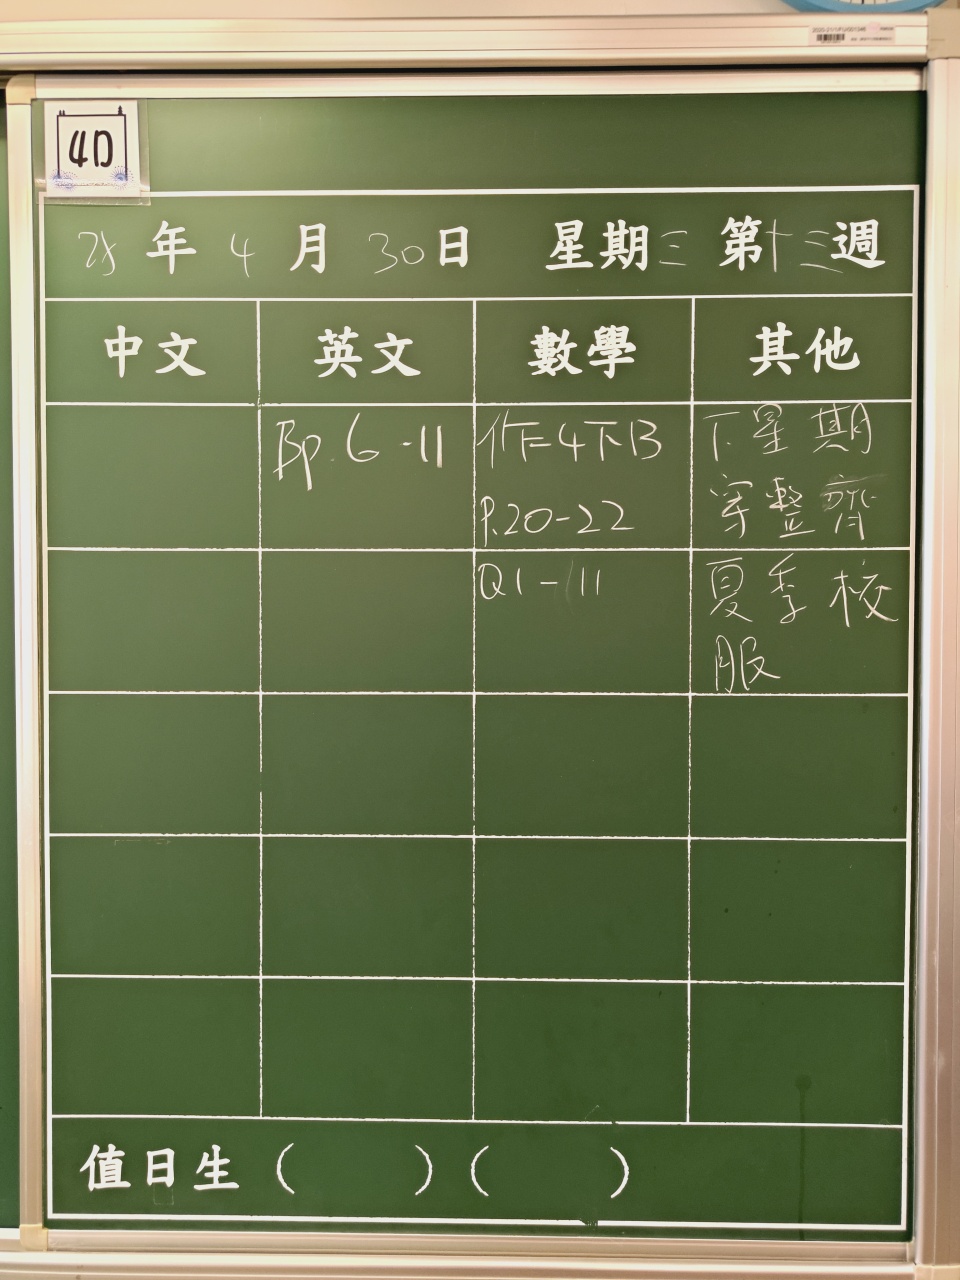 4D
25 年 4 月 30 日 星期三 第十三週
中文 英文 數學 其他
Bp. 6 - 11
作 4下B
P.20-22
Q1-11
下星期
穿整齊
夏季校
服
值日生 ( ) ( )